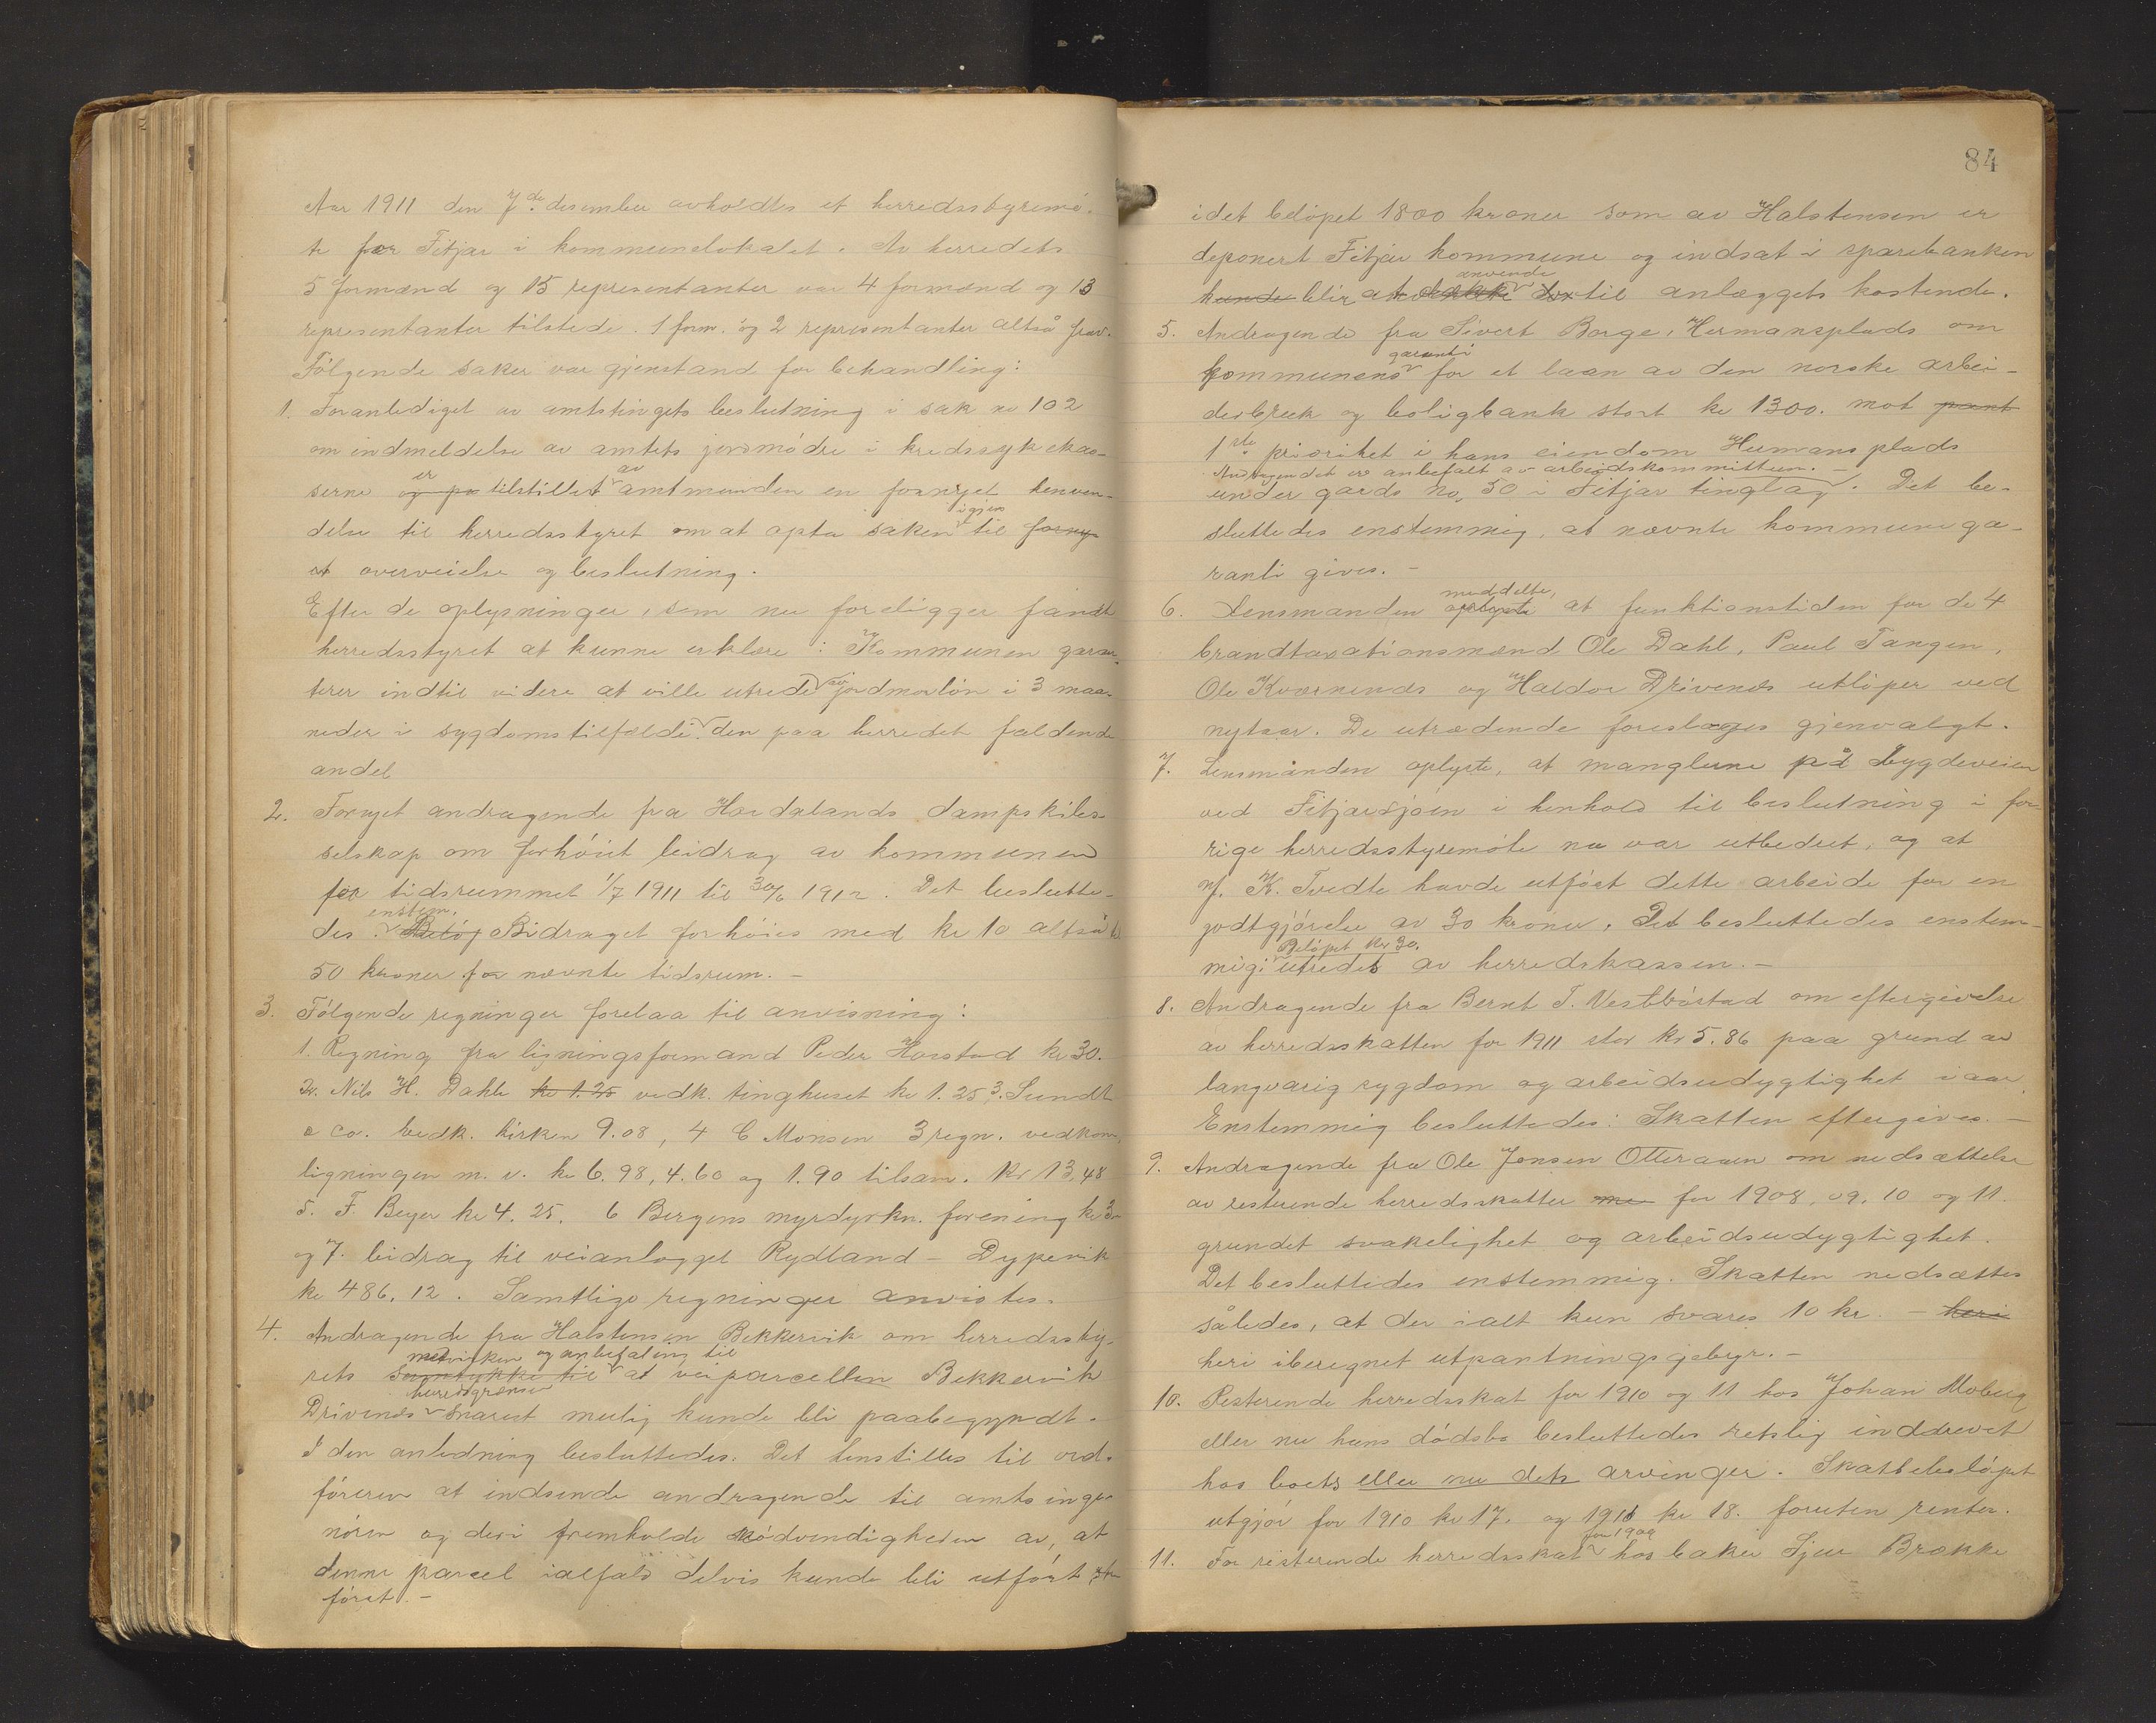 Aar 1911 den 7de desember avholdtes et herredsstyremö-
te for Fitjar i kommunelokalet. Av herredets
5 formænd og 15 representanter var 4 formænd og 13
representanter tilstede. 1 form. og 2 representanter altså frav.
Fölgende saker var gjenstand for behandling:
1. Foranlediget av amtstingets beslutning i sak no 102
om indmeldelse av amtets jordmödre i kredssykekas-
serne og pa er tilstillet av amtmanden en fornyet henven-
delse til herredsstyret om at opta saken igjen til forny-
et overveielse og beslutning.
Efter de oplysninger, som nu foreligger fandt
herredsstyret at kunne erklære: Kommunen garan-
terer indtil videre at ville utrede av jordmorlön i 3 maa-
neder i sygdomstilfælde den paa herredet faldende
andel
2. Fornyet andragende fra Hardalands dampskibs-
selskap om forhöiet bidrag av kommunen
for tidsrummet 1/7 1911 til 30/6 1912. Det beslutte-
des enstem. Belöp Bidraget forhöies med kr 10 altså til
50 kroner for nævnte tidsrum. -
3. Fölgende regninger forelaa til anvisning:
1. Regning fra ligningsformand Peder Havstad kr 30.
2. Nils H. Dahle kr 1.25 vedk. tinghuset kr 1.25 3. Sundt
& co. vedk. kirken 9.08, 4 C Monsen 3 regn. vedkom.
ligningen m. v. kr 6.98, 4.60 og 1.90 tilsam. kr 13,48
5. F. Beyer kr 4.25. 6 Bergens myrdyrkn. forening kr 3-
og 7. bidrag til veianlægget Rydland - Dypevik
kr 486.12. Samtlige regninger anvistes.
4. Andragende fra Halstensen Bekkervik om herredssty-
rets samtykke til medvirken og anbefaling til at veiparcellen Bekkervik
Drivenes herredsgrænse snarest mulig kunde bli paabegyndt.
I den anledning besluttedes: Det henstilles til ord-
föreren at indsende andragende til amtsinge-
niören og deri fremholde nödvendigheden av, at
denne parcel ialfald delvis kunde bli utfört
föret. -
84
idet belöpet 1800 kroner som av Halstensen er
deponert Fitjar kommune og indsat i sparebanken
kunde blir at dække anvende til anlæggets kostende.
5. Andragende fra Sivert Borge, Hermansplads om
kommunens garanti for et laan av den norske arbei-
derbruk og boligbank stort kr 1300. mot pant
1ste prioritet i hans eiendom Hermansplads
Andragendet er anbefalt av arbeidskommitteen. -
under gards no. 50 i Fitjar tinglag. Det be-
sluttedes enstemmig, at nævnte kommunega-
ranti gives. -
6. Lensmanden oplyste meddelte, at funktionstiden for de 4
brandtaxationsmænd Ole Dahl, Paul Tangen,
Ole Kværnenes og Haldor Drivenes utlöper ved
nytaar. De utrædende foreslaaes gjenvalgt.
7. Lensmanden oplyste, at manglerne på bygdeveien
ved Fitjarsjöen i henhold til beslutning i for-
rige herredsstyremöte nu var utbedret, og at
N. K. Tvedte havde utfört dette arbeide for en
godtgjörelse av 30 kroner. Det besluttedes enstem-
mig: Belöpet kr 30. utredes av herredskassen. -
8. Andragende fra Bernt T. Vestböstad om eftergivelse
av herredsskatten for 1911 stor kr 5.86 paa grund av
langvarig sygdom og arbeidsudygtighet iaar.
Enstemmig besluttedes: Skatten eftergives. -
9. Andragende fra Ole Jensen Otteraaen om nedsættelse
av resterende herredsskatter for 1908, 09, 10 og 11.
grundet svakelighet og arbeidsudygtighet.
Det besluttedes enstemmig. Skatten nedsættes
således, at der ialt kun svares 10 kr. - heri
heri iberegnet utpantningsgebyr. -
10. Resterende herredsskat for 1910 og 11 hos Johan Moberg
eller nu hans dödsbo besluttedes retslig inddrevet
hos boets eller nu dets arvinger. Skattebelöpet
utgjör for 1910 kr 17. og 1911 kr 18. foruten renter.
11. For resterende herredsskat for 1909 hos baker Sjur Brække